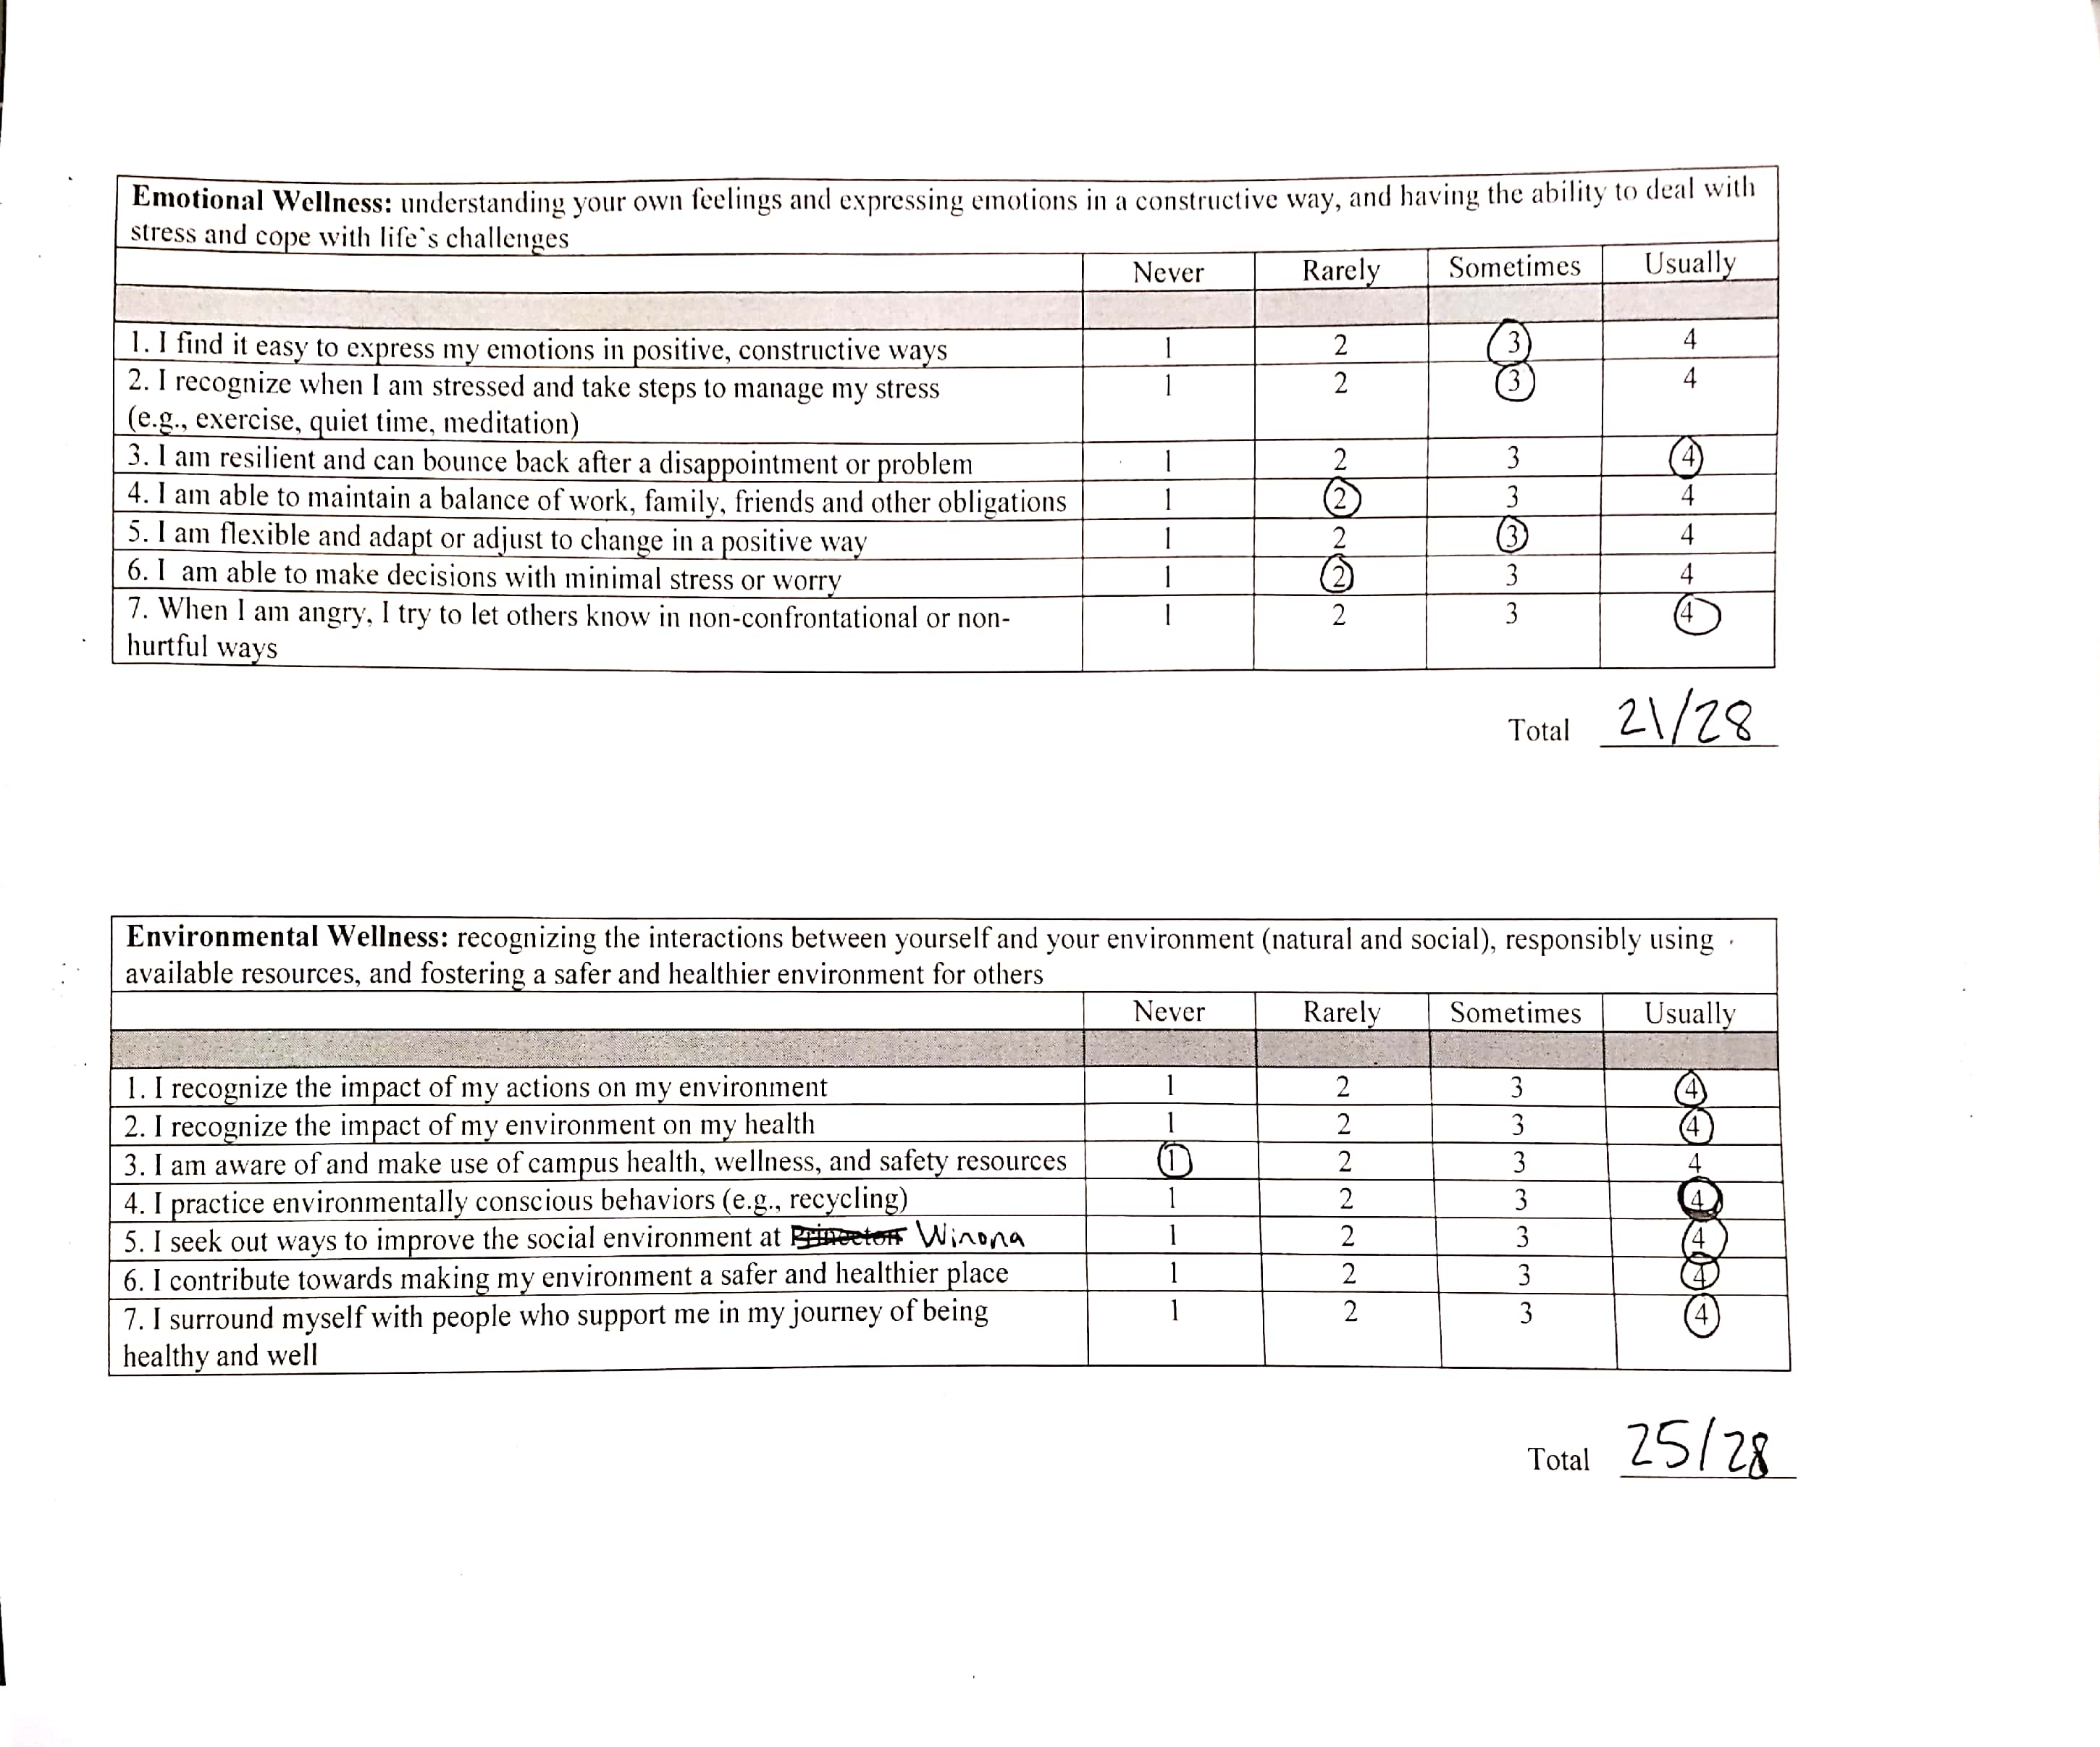 Emotional Wellness: understanding your own feelings and expressing emotions in a constructive way, and having the ability to deal with
stress and cope with life`s challenges
Never Rarely Sometimes Usually
1. I find it easy to express my emotions in positive, constructive ways 1 2 3 4
2. I recognize when I am stressed and take steps to manage my stress 1 2 3 4
(e.g., exercise, quiet time, meditation)
3. I am resilient and can bounce back after a disappointment or problem 1 2 3 4
4. I am able to maintain a balance of work, family, friends and other obligations 1 2 3 4
5. I am flexible and adapt or adjust to change in a positive way 1 2 3 4
6. I am able to make decisions with minimal stress or worry 1 2 3 4
7. When I am angry, I try to let others know in non-confrontational or non- 1 2 3 4
hurtful ways
Total 21/28
Environmental Wellness: recognizing the interactions between yourself and your environment (natural and social), responsibly using
available resources, and fostering a safer and healthier environment for others
Never Rarely Sometimes Usually
1. I recognize the impact of my actions on my environment 1 2 3 4
2. I recognize the impact of my environment on my health 1 2 3 4
3. I am aware of and make use of campus health, wellness, and safety resources 1 2 3 4
4. I practice environmentally conscious behaviors (e.g., recycling) 1 2 3 4
5. I seek out ways to improve the social environment at Princeton Winona 1 2 3 4
6. I contribute towards making my environment a safer and healthier place 1 2 3 4
7. I surround myself with people who support me in my journey of being 1 2 3 4
healthy and well
Total 25/28